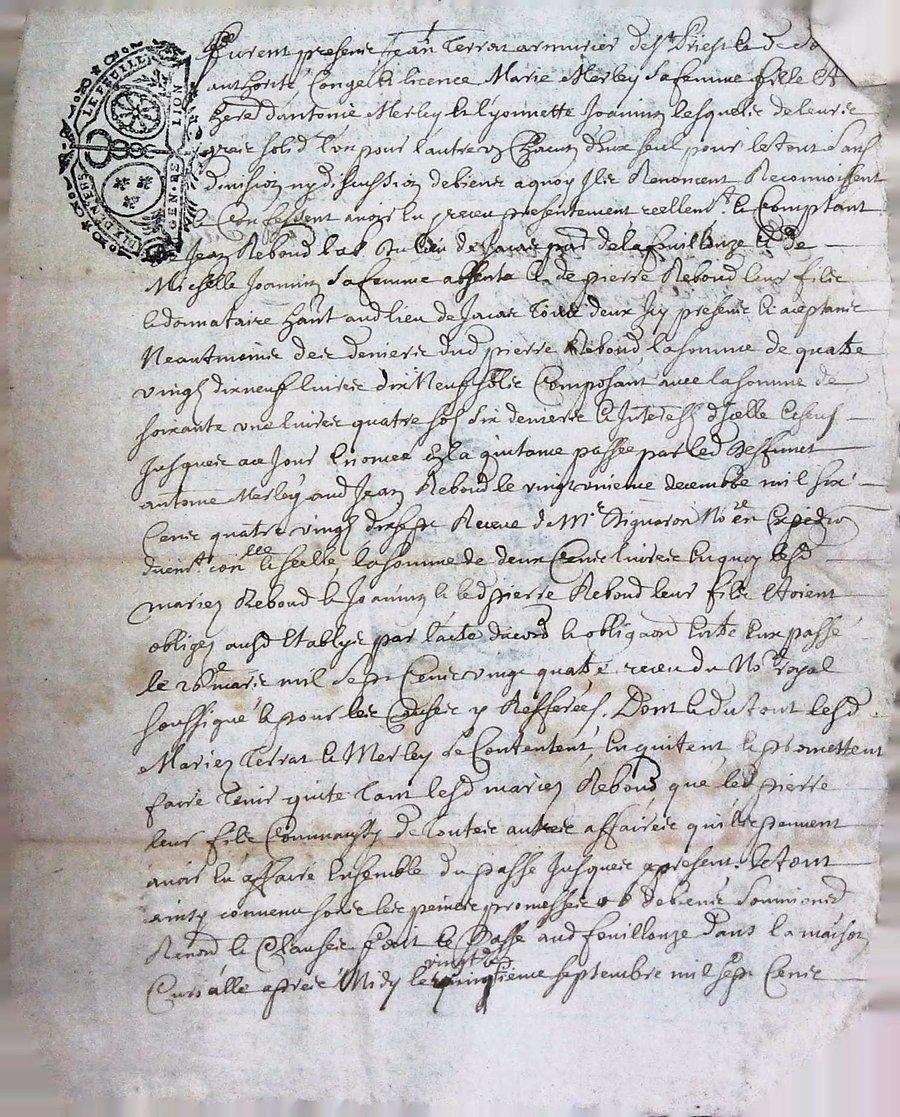 LE FEUILLET
DIX DENIERS
GEN · DE LION
furent presens Jean Terrat armurier de St Priest et de
authorité Conge et licence Marie Merley sa femme fille et
here d'antoine Merley et lyonnette Joannin lesquels de leurs
grais solid l'un pour l'autre Chacun d'eux seul pour le tout sans
division ny discussion de biens a quoy ils Renoncent Reconnoissent
et Confessent avoir eu receu presentement reellemt et Comptant
Jean Rebond lab du lieu de de la fouillouze et de
Michelle Joannin sa femme absente et de pierre Rebond leur fils
et donnataire dud lieu de tous deux icy presens et aceptans
Neantmoins des deniers dud pierre Rebond la somme de quatre
vingt dix neuf livres dix Neuf sols Composant avec la somme de
soixante une livres quatre sols dix deniers et interests d'icelle
Jusques a ce Jour la quitance passée par led deffunct
antoine Merley aud Jean Rebond le vingt unieme decembre mil six
Cens quatre vingt Receue de Mre Nore en
la somme de deux Cens livres en quoy lesd
mariez Rebond et Joannin et led pierre Rebond leur fils etoient
obligez ausd etablys par l'acte d'acord et obligaon entre eux passé
le 26e mars mil sept Cens vingt quatre receu du Nore royal
soussigné et pour les Causes y Refferées. Dont et du tout lesd
Mariez Terrat et Merley se Contentent en quitent et promettent
faire Tenir quite Tant lesd mariez Rebond que led pierre
leur fils de toutes autres affaires qu'ils peuvent
avoir eu affaire Ensemble du passé Jusques a present. Et tout
ainsy convenu sous les peines promesses ob de biens soumions
Renon et Clauses fait et Passé aud fouillouze dans la maison
Curialle aprés Midy le vingt septembre mil sept Cens